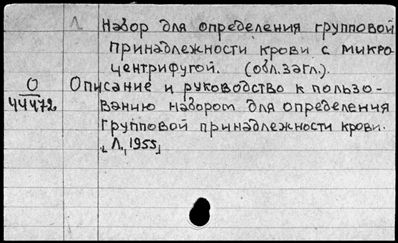 Л. Набор для определения групповой
принадлежности крови с микро
центрифугой. (обл.загл.).
О Описание и руководство к пользо-
44472 ванию набором для определения
групповой принадлежности крови.
[Л., 1955]